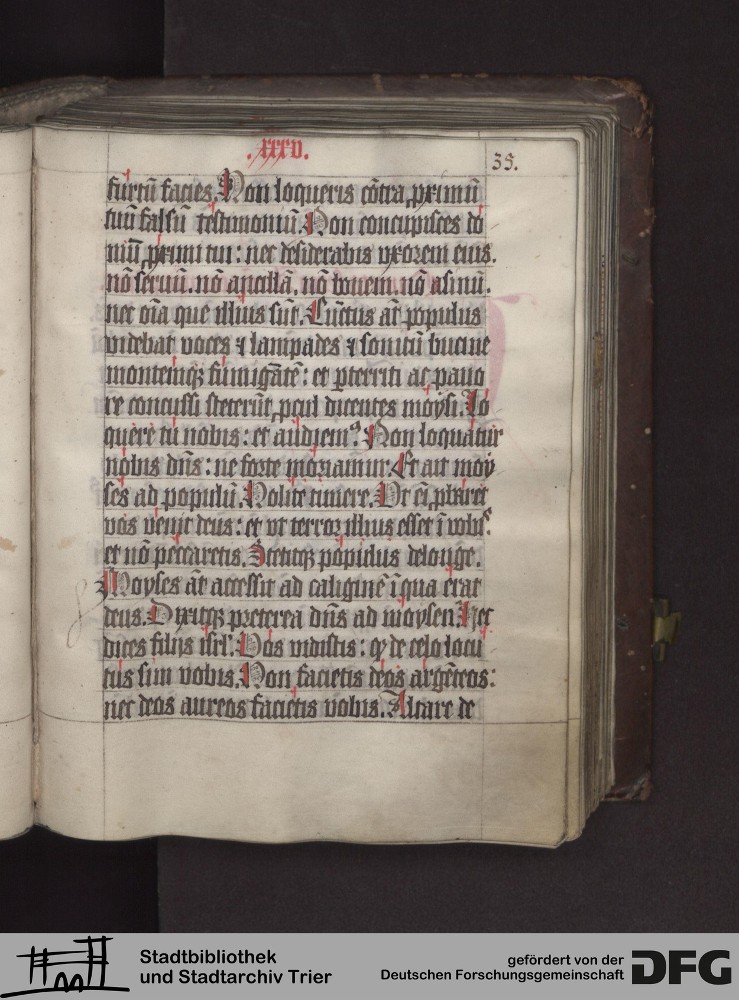 .xxxv.
35.
furtū facies. Non loqueris cōtra ꝓximū
tuū falsū testimoniū. Non concupisces do
mū ꝓximi tui: nec desiderabis vxorem eius.
nō seruū. nō ancillā. nō bouem. nō asinū.
nec oīa que illius sūt. Cūctus aūt populus
videbat voces ⁊ lampades ⁊ sonitū bucine
montemqꝫ fumigātē: et ꝑterriti ac pauo
re concussi steterūt ꝓcul dicentes moysi. Lo
quere tu nobis: et audiemꝰ. Non loquatur
nobis dn̄s: ne forte moriamur. Et ait moy
ses ad populū. Nolite timere. Vt eī ꝓbaret
vos venit deus: et vt terror illius esset ī vobꝭ.
et nō peccaretis. Stetitqꝫ populus delonge.
Moyses aūt accessit ad caliginē ī qua erat
deus. Dixitqꝫ preterea dn̄s ad moysen. Hec
dices filijs isrl'. Vos vidistis: ꝙ de celo locu
tus sim vobis. Non facietis deos argēteos:
nec deos aureos facietis vobis. Altare de
Stadtbibliothek
und Stadtarchiv Trier
gefördert von der
Deutschen Forschungsgemeinschaft
DFG